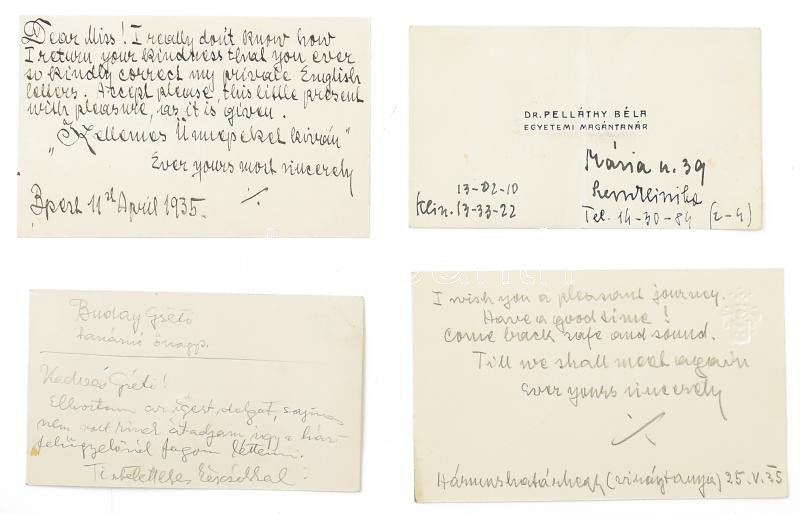 Dear Miss! I really don't know how
I return your kindness that you ever
so kindly correct my private English
letters. Accept please, this little present
with pleasure, as it is given.
"Kellemes Ünnepeket kíván"
Ever yours most sincerely
Bpest 11st April 1935.
DR. PELLÁTHY BÉLA
EGYETEMI MAGÁNTANÁR
Mária u. 39
13-02-10
Klin. 13-33-22
Tel. 14-30-84 (2-4)
Buday Gréti
tanárnő
Kedves Gréti!
Elhoztam az ígért dolgot, sajnos
nem volt kinek átadjam, így a ház-
felügyelőnél fogom letenni.
I wish you a pleasant journey.
Have a good time!
Come back safe and sound.
Till we shall meet again
Ever yours sincerely
Hármashatárhegy (virágtanya) 25.V.35